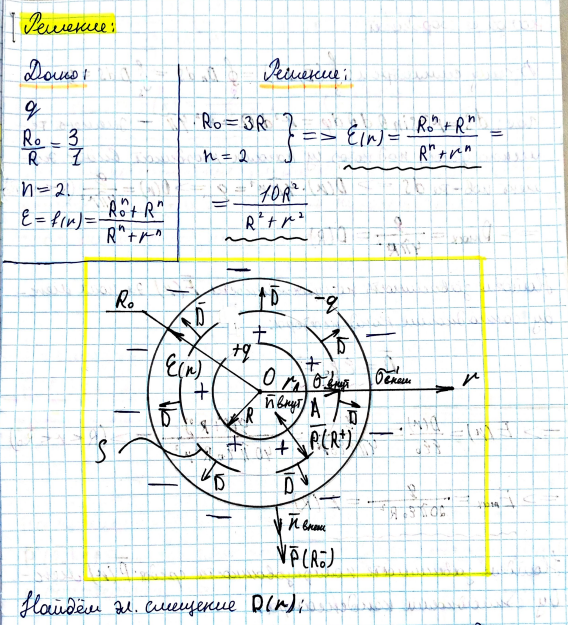 Решение:
Дано:
q
R₀/R = 3/1
n=2.
ε = f(r) = (R₀ⁿ + Rⁿ)/(Rⁿ + rⁿ)
Решение:
R₀ = 3R
n = 2
} => ε(r) = (R₀ⁿ + Rⁿ)/(Rⁿ + rⁿ) =
= 10R²/(R² + r²)
R₀
D̄
D̄
-q
D̄
+q
ε(r)
O
r
σ'внут
σ'внеш
r
n̄внут
D̄
R
A
D̄
P̄(R⁺)
S
D̄
D̄
n̄внеш
P̄(R₀⁻)
Найдём эл. смещение D(r):